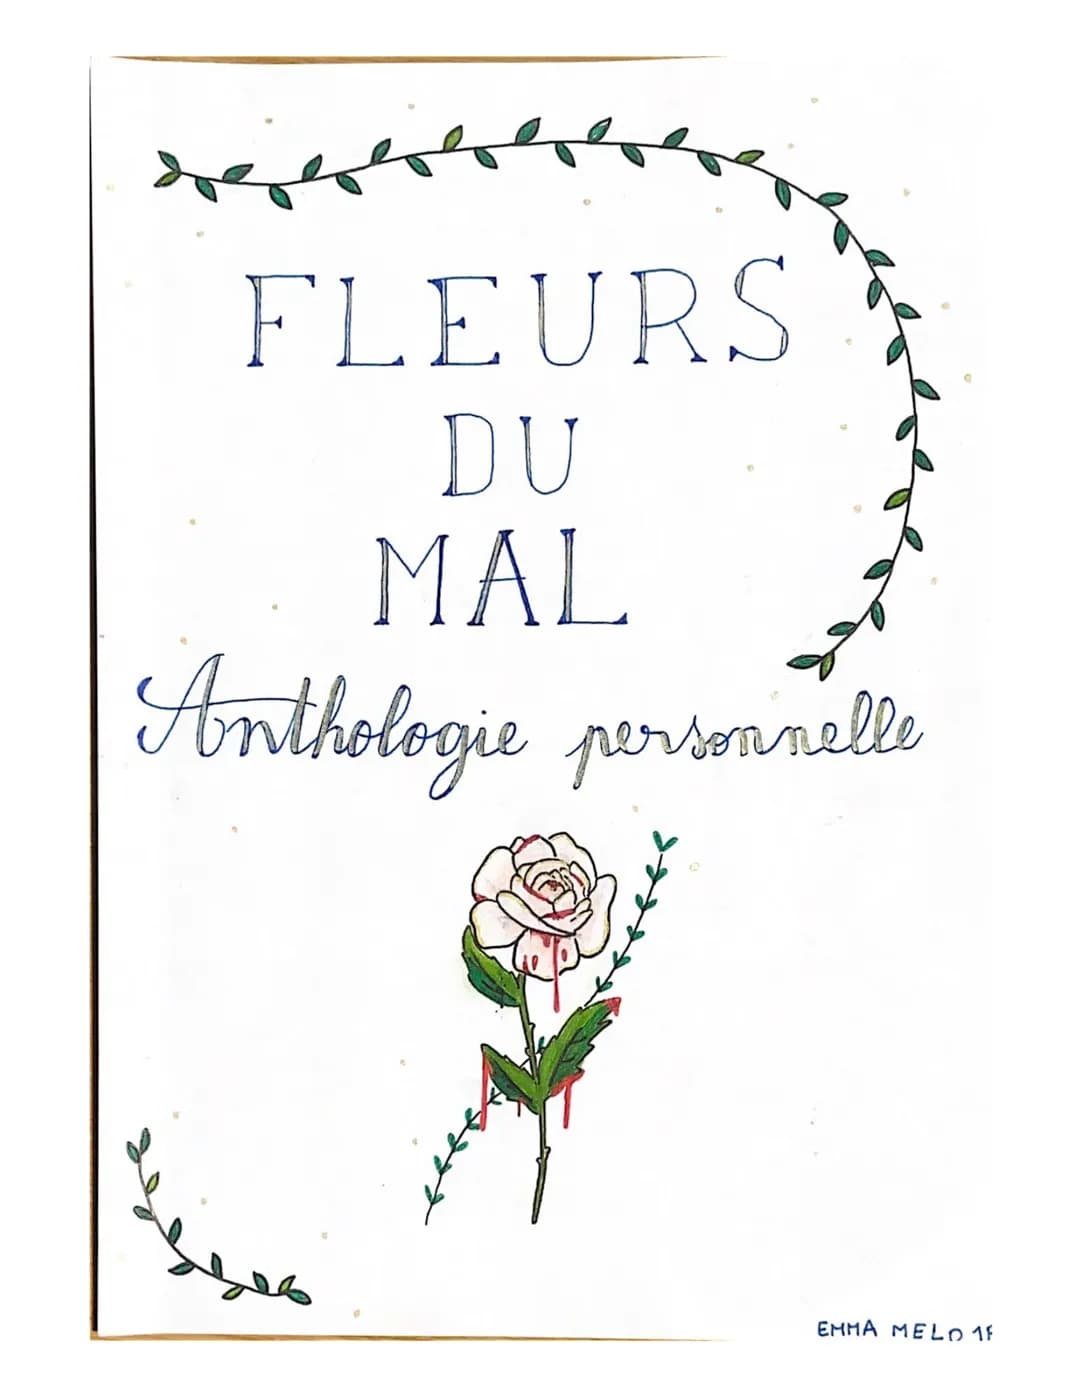 FLEURS
DU
MAL
Anthologie personnelle
EMMA MELO